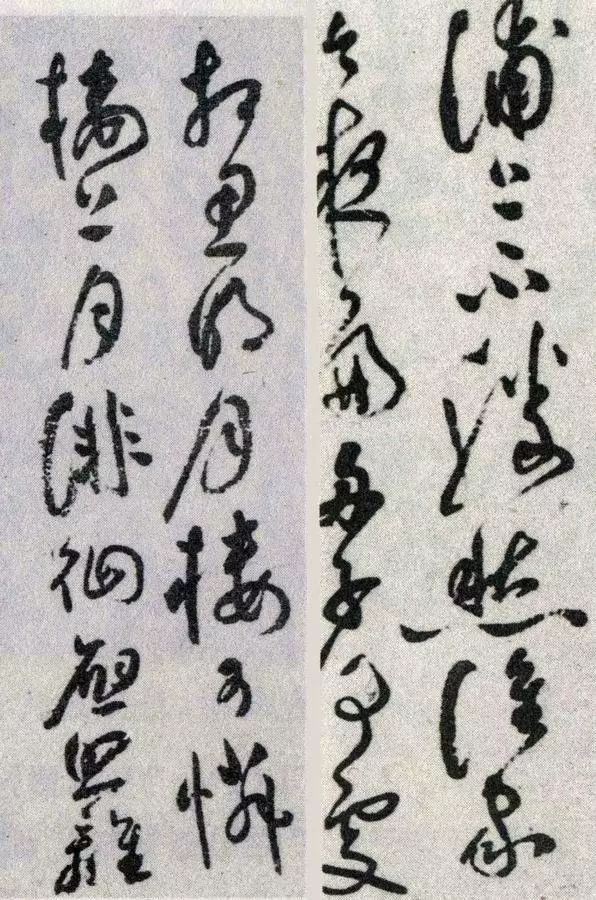 浦上不勝愁誰家
今夜扁舟子何處
相思明月樓可憐
樓上月徘徊應照離